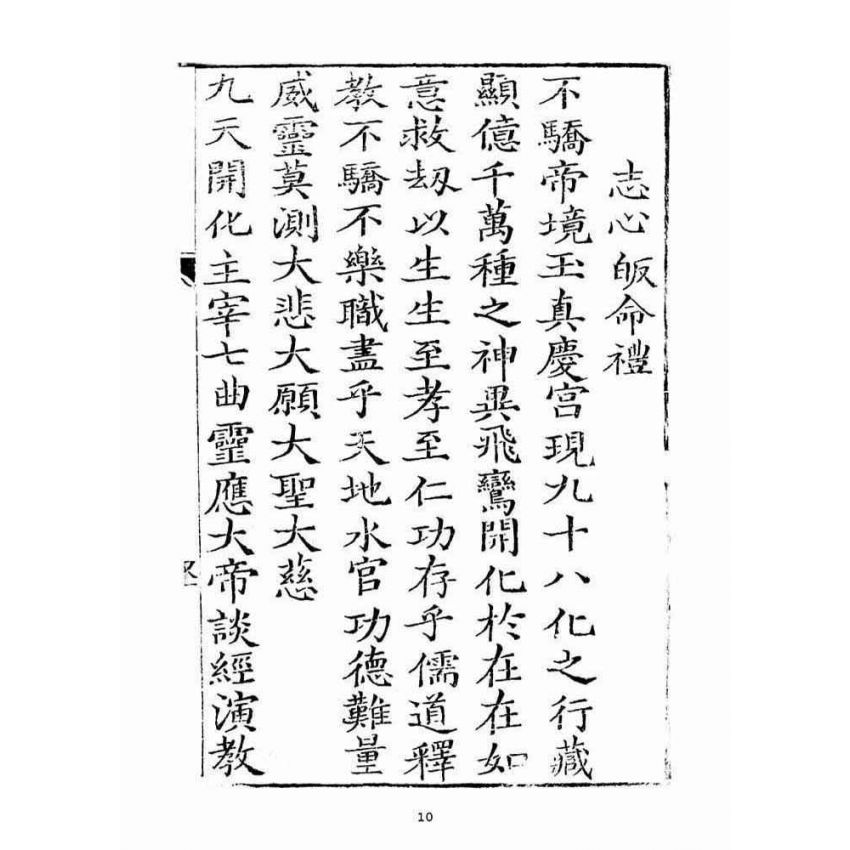 志心皈命禮
不驕帝境玉真慶宮現九十八化之行藏
顯億千萬種之神異飛鸞開化於在在如
意救刼以生生至孝至仁功存乎儒道釋
教不驕不樂職盡乎天地水官功德難量
威靈莫測大悲大願大聖大慈
九天開化主宰七曲靈應大帝談經演教
10